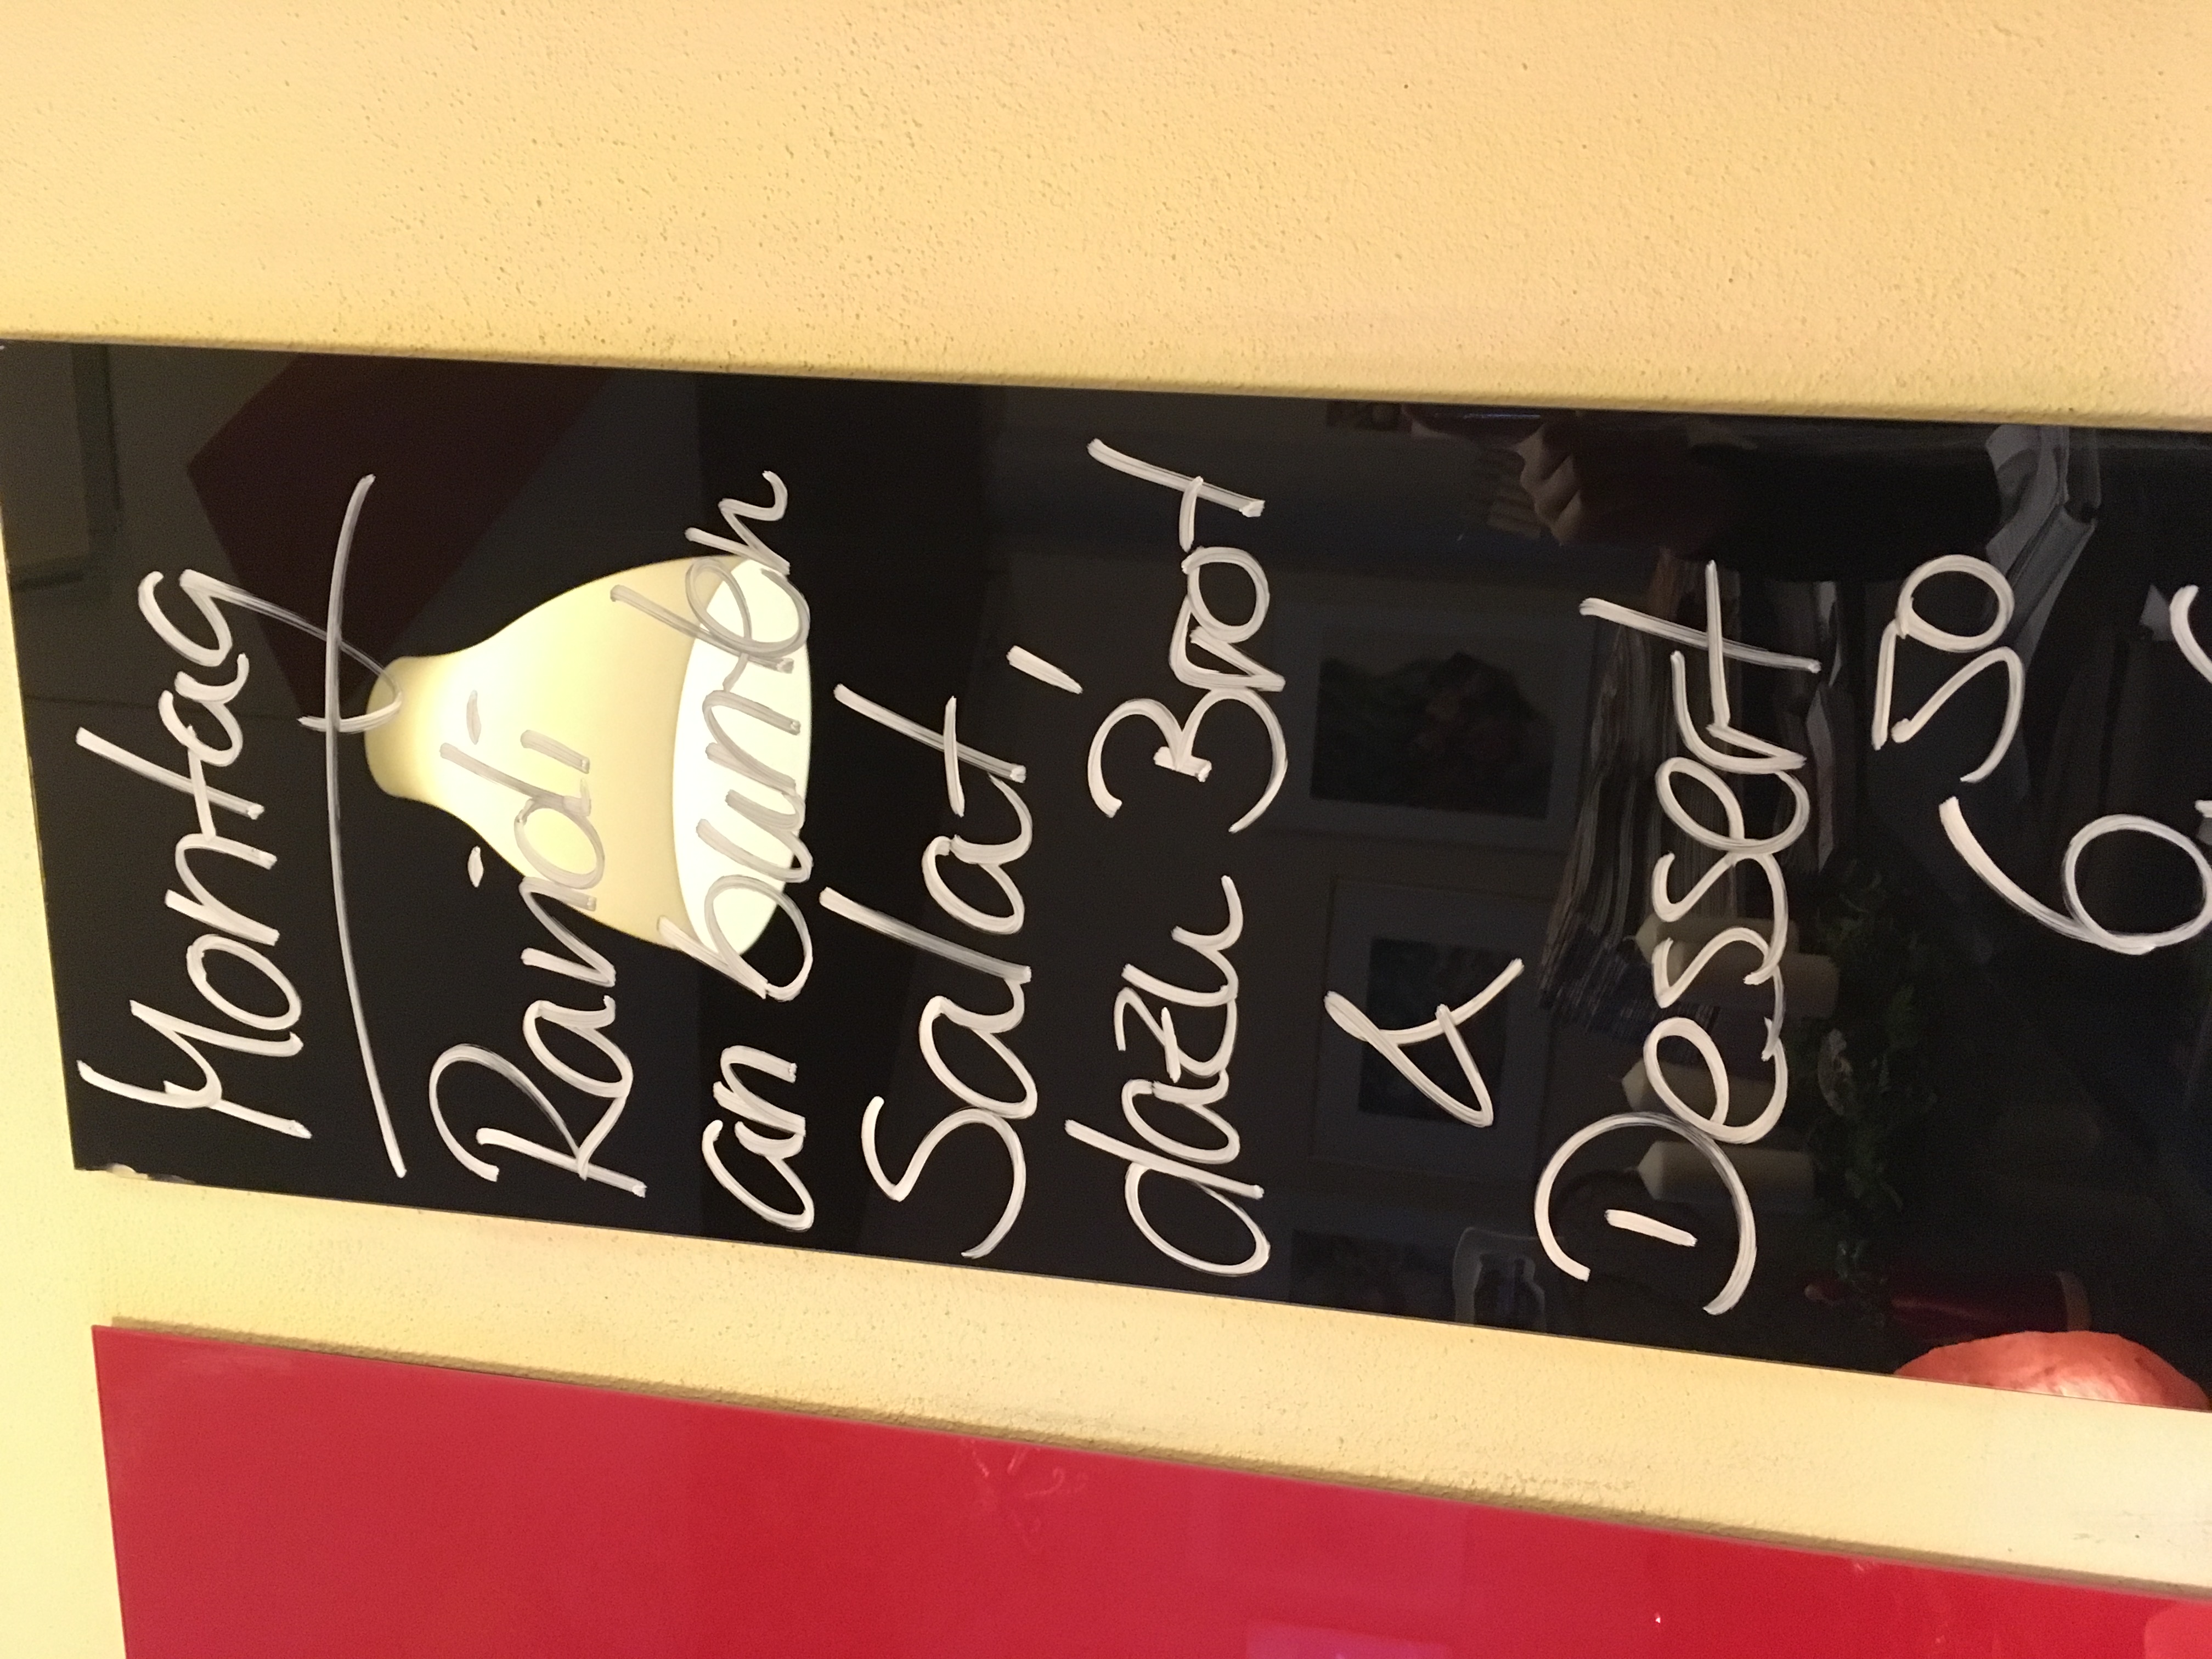 Montag
Ravioli
an bunten
Salat,
dazu Brot
&
Dessert
6 50